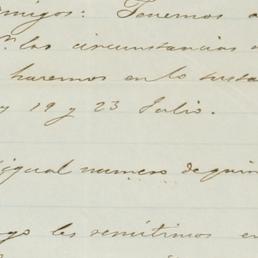 amigos: Tenemos a
las circunstancias
haremos en lo susta
y 19 y 23 Julio.
igual numero de quin
go les remitimos en